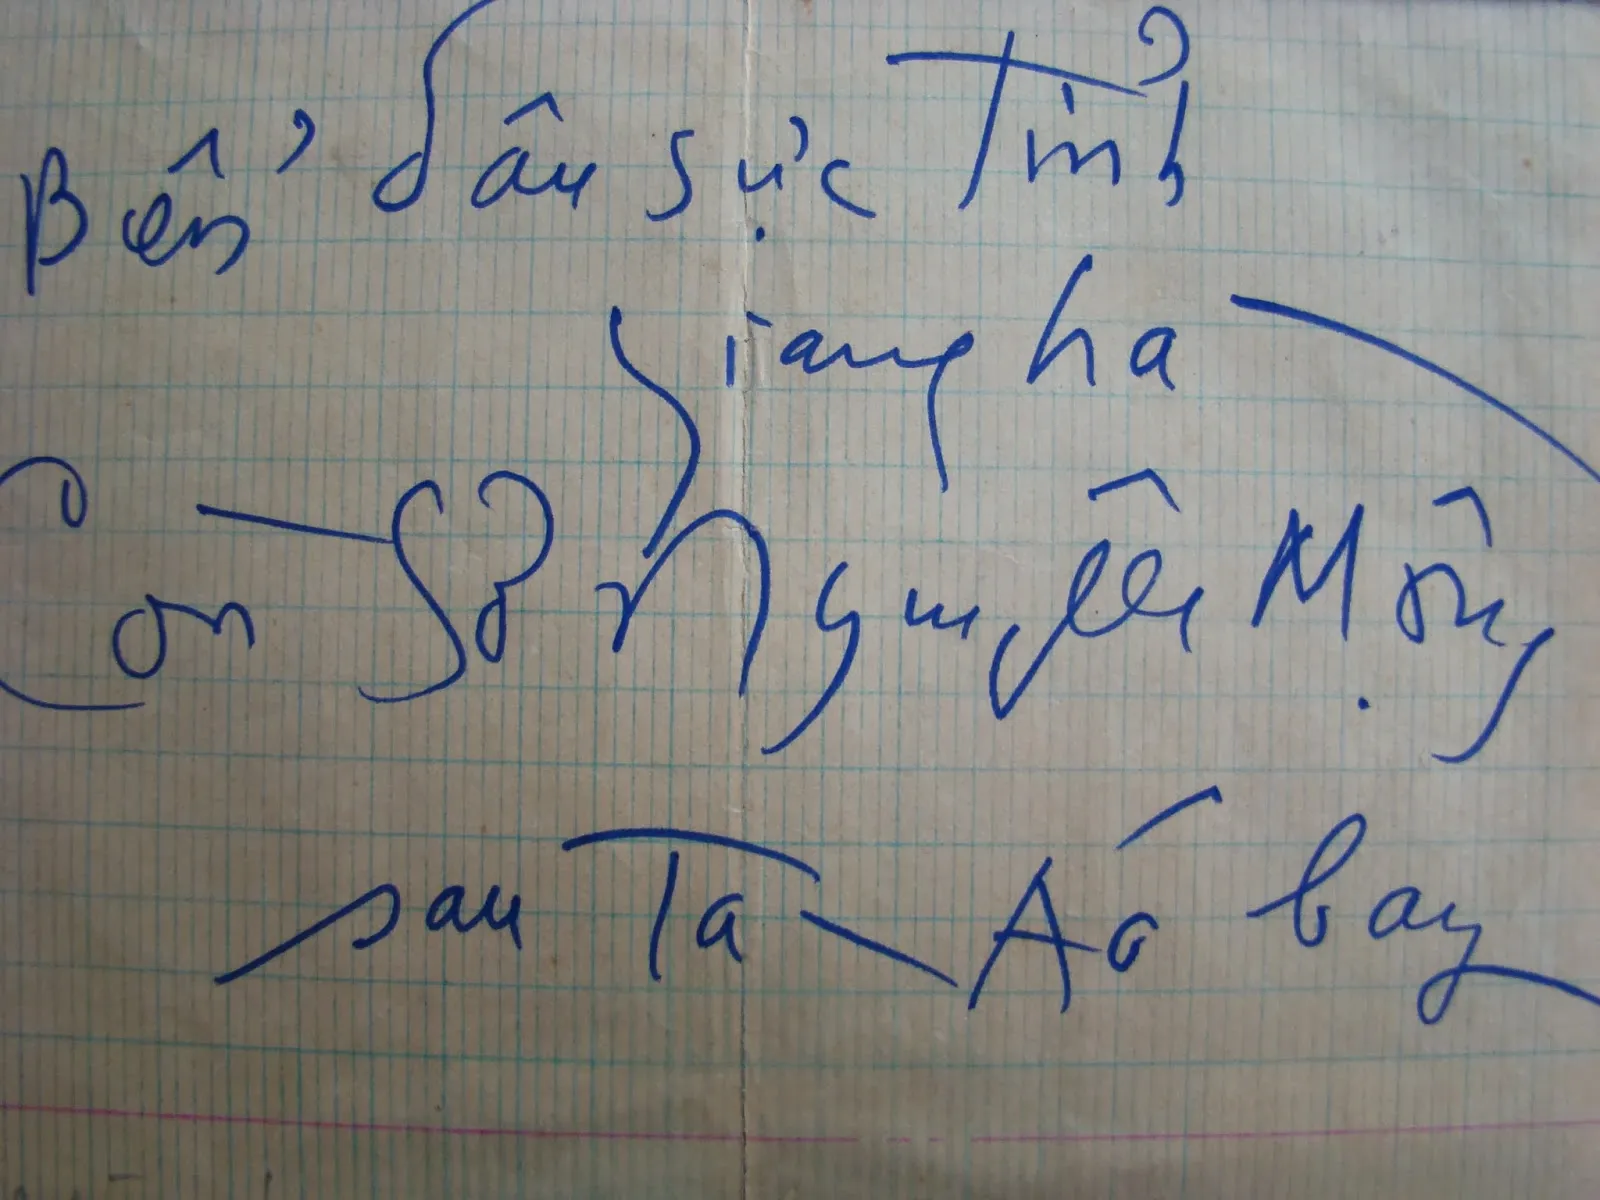 Biển dâu sực Tỉnh
giang hà
Còn Sơ Nguyên Mộng
sau Tà Áo bay